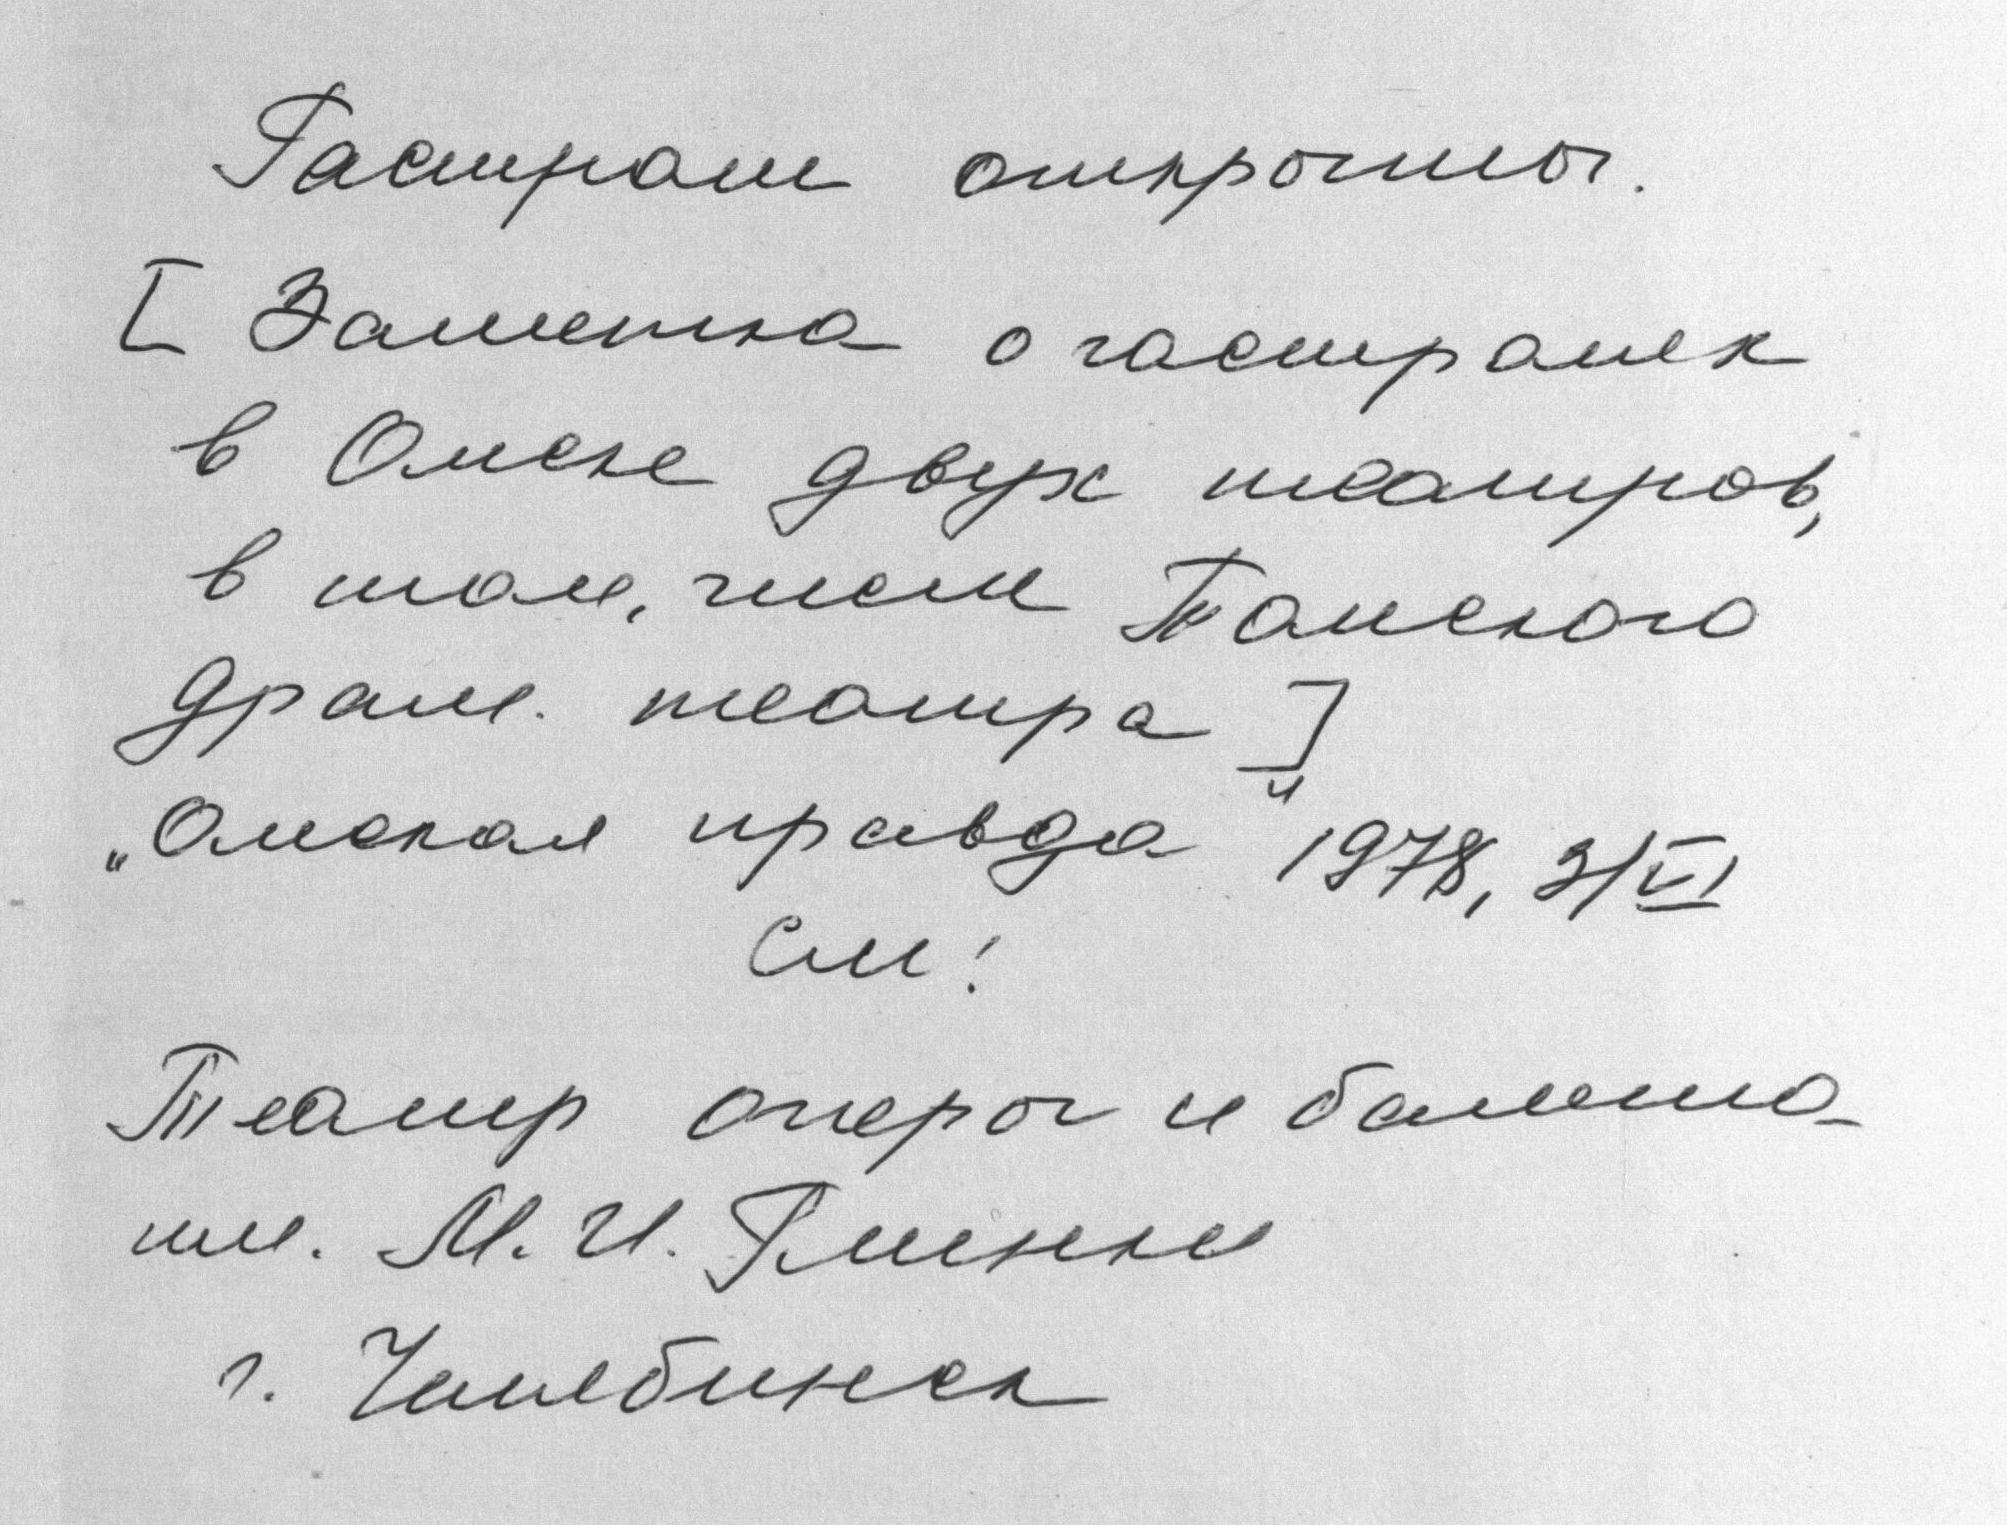 Гастроли открыты.
[ Заметка о гастролях
в Омске двух театров,
в том, числе Томского
драм. театра ]
„Омская правда" 1978, 3/VI
См:
Театр оперы и балета
им. М.И. Глинки
г. Челябинск